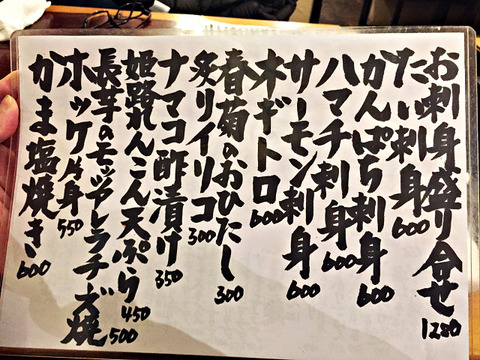 お刺身盛り合せ 1280
たい刺身 600
かんぱち刺身 600
ハマチ刺身 600
サーモン刺身 600
ネギトロ 600
春菊のおひたし 300
炙りイリコ 300
ナマコ酢漬け 350
姫路れんこん天ぷら 450
長芋のモッツァレラチーズ焼 500
ホッケ片身 550
かま塩焼き 600